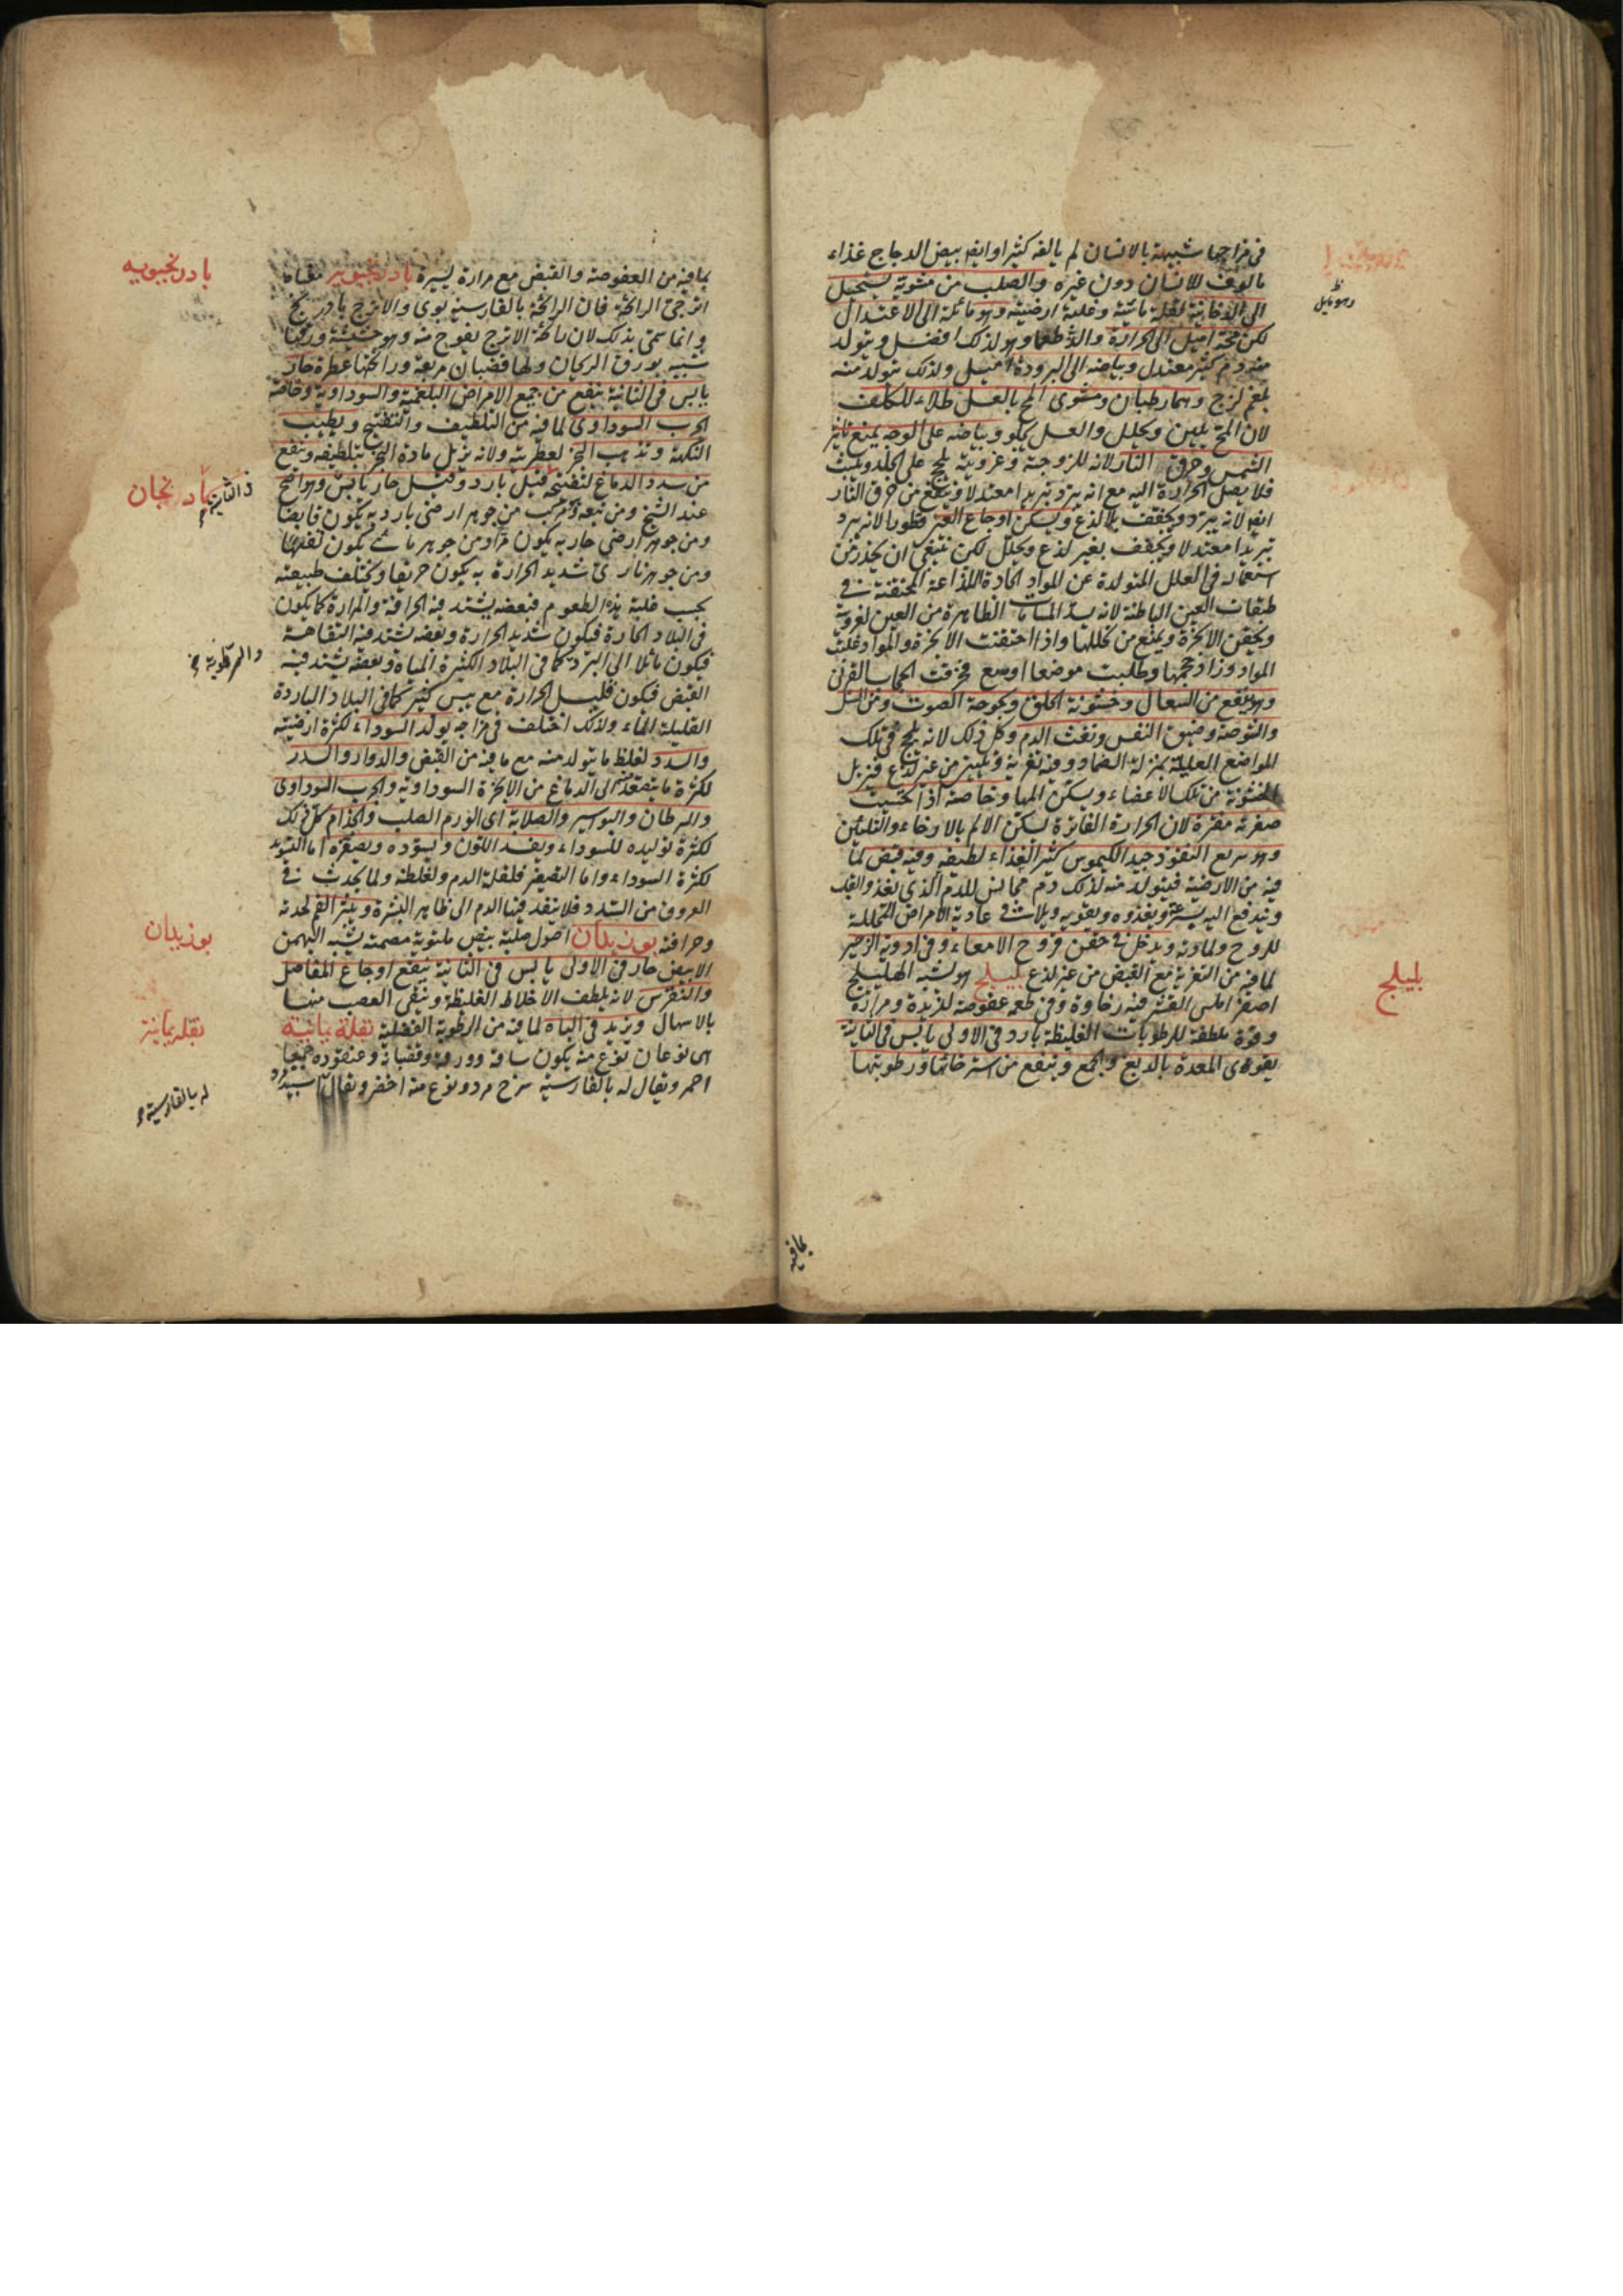 في مزاجها شبيهة بالانسان لم يالفه كثيرا وايضا بيض الدجاج غذاء
مالوف للانسان دون غيره والصلب من مشويه يستحيل
الى الدخانية لقلة مائيته وغلبة ارضيته وهو مائلة الى الاعتدال
لكن محه اميل الى الحرارة والذ طعما وهو لذلك افضل ويتولد
منه دم كثير معتدل وبياضه الى البرودة اميل ولذلك يتولد منه
بلغم لزج وهما رطبان ومشوى المح بالعسل طلاء للكلف
لان المح يلين ويحلل والعسل يجلو وبياضه على الوجه يمنع تاثير
الشمس وحرق النار لانه للزوجته وغرويته يلحج على الجلد ويلبث
فلا يصل الحرارة اليه مع انه يبرد تبريدا معتدلا وينفع من حرق النار
ايضا لانه يبرد ويجفف بلا لذع ويسكن اوجاع العين قطورا لانه يبرد
تبريدا معتدلا ويجفف بغير لذع ويحلل لكن ينبغي ان يحذر من
استعماله في العلل المتولدة عن المواد الحادة اللذاعة المحتقنة في
طبقات العين الباطنة لانه يسد المسامات الظاهرة من العين لغرويته
ويحقن الابخرة ويمنع من تحللها واذا احتقنت الابخرة والمواد غلت
المواد وزاد حجمها وطلبت موضعا اوسع فخرقت الحجاب القرني
وهو ينفع من السعال وخشونة الحلق وبحوحة الصوت ومن السل
والشوصة وضيق النفس ونفث الدم وكل ذلك لانه يلحج في تلك
المواضع العليلة بمنزلة الضماد وفيه تغرية وتليين من غير لذع فيزيل
الخشونة من تلك الاعضاء ويسكن المها وخاصة اذا تحسيت
صفرته مفترة لان الحرارة الفاترة تسكن الالم بالارخاء والتليين
وهو سريع النفوذ جيد الكيموس كثير الغذاء لطيفه وفيه قبض لما
فيه من الارضية فيتولد منه لذلك دم مجانس للدم الذي يغذو القلب
ويندفع اليه بسرعة ويغذوه ويقويه ويلا في عادية الامراض المحللة
للروح ولمادته ويدخل في حقن قروح الامعاء وفي ادوية الزحير
لما فيه من التغرية مع القبض من غير لذع بليلج هو يشبه الهليلج
اصفر املس القشر فيه رخاوة وفي طعمه عفوصة لذيذة ومرارة
وقوة ملطفة للرطوبات الغليظة بارد في الاولى يابس في الثانية
يقوى المعدة بالدبغ والجمع وينفع من استرخائها ورطوبتها
بليلج
بما فيه
بما فيه من العفوصة والقبض مع مرارة يسيرة بادرنجبويه معناه
اترجى الرائحة فان الرائحة بالفارسية بوى والاترج بادرنج
وانما سمى بذلك لان رائحة الاترج يفوح منه وهو حشيشة ورقها
شبيه بورق الريحان ولها قضبان مربعة ورائحتها عطرة حار
يابس في الثانية ينفع من جميع الامراض البلغمية والسوداوية وخاصة
الجرب السوداوى لما فيه من التلطيف والتفتيح ويطيب
النكهة ويذهب البخر لعطريته ولانه يزيل مادة البخر بتلطيفه وينفع
من سدد الدماغ لتفتيحه قيل بارد وقيل حار يابس وهو اصح
عند الشيخ ومن تبعه وهو مركب من جوهر ارضى بارد به يكون قابضا
ومن جوهر ارضى حار به يكون مرا ومن جوهر مائي يكون تفها
ومن جوهر نارى شديد الحرارة به يكون حريفا ويختلف طبيعته
بحسب غلبة هذه الطعوم فبعضه يشتد فيه الحرافة والمرارة كما يكون
في البلاد الحارة فيكون شديد الحرارة وبعضه يشتد فيه التفاهة
فيكون مائلا الى البرد كما في البلاد الكثيرة المياه وبعضه يشتد فيه
القبض فيكون قليل الحرارة مع يبس كثير كما في البلاد الباردة
القليلة الماء ولذلك اختلف في مزاجه يولد السوداء لكثرة ارضيته
والسدد لغلظ ما يتولد منه مع ما فيه من القبض والدوار والسدر
لكثرة ما يتصعد منه الى الدماغ من الابخرة السوداوية والجرب السوداوى
والسرطان والبواسير والصلابة اى الورم الصلب والجذام كل ذلك
لكثرة توليده للسوداء ويفسد اللون ويسوده ويصفره اما التسويد
لكثرة السوداء واما التصفير فلقلة الدم ولغلظه ولما يحدث في
العروق من السدد فلا ينفذ فيها الدم الى ظاهر البشرة ويبثر الفم لحدته
وحرافته بوزيدان اصول صلبة بيض ملتوية مصمتة يشبه البهمن
الابيض حار في الاولى يابس في الثانية ينفع اوجاع المفاصل
والنقرس لانه يلطف الاخلاط الغليظة وينقى العصب منها
بالاسهال ويزيد في الباه لما فيه من الرطوبة الفضلية بقلة يمانية
هى نوعان نوع منه يكون ساقه وورقه وقضبانه وعنقوده جميعا
احمر ويقال له بالفارسية سرخ مرد ونوع منه اخضر ويقال سبيد مرد
بادرنجبويه
بادنجان
في الثانية
بوزيدان
بقلة يمانية
له بالفارسية